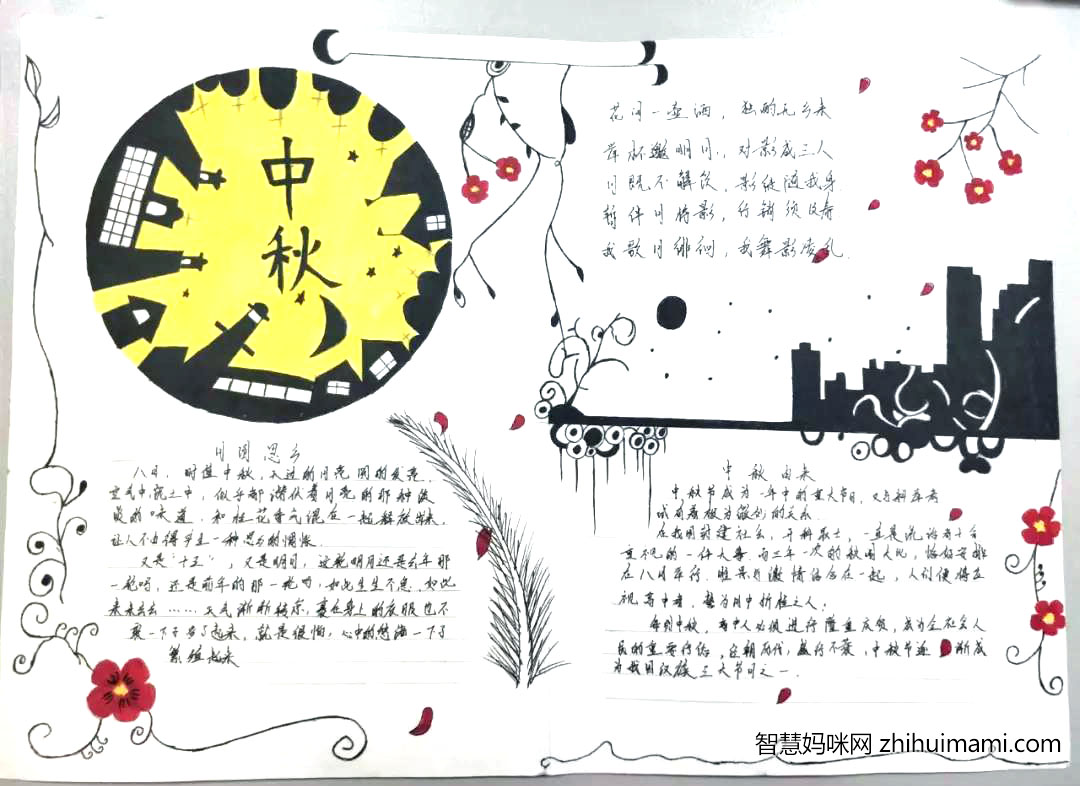 中秋
花间一壶酒，独酌无
举杯邀明月，对影成三人
月既不解饮，影徒随我身
暂伴月将影，行须及春
我歌月徘徊，我舞影凌乱
月圆思乡
八月，时值中秋，入过的月亮圆的发亮
空气中，泥土中，似乎都潜伏着月亮的那种
的味道，和桂花香气混在一起释放出来，
让人不由得平生一种思乡的惆怅
又是"十五"，又是明月，这轮明月还是去年那
一轮吗，还是前年的那一轮，如此生生不息，如此
来来去去……天气渐渐转凉，套在身上的衣服也不
一下子多了起来，就是很怕，心中的愁绪一下子
繁殖起来
中秋由来
中秋节成为一年中的重大节日，又与科举考
试有着极为微妙的关系
在我国封建社会，开科取士，一直是统治者十分
重视的一件大事，而三年一次的秋闱大比，恰好安排
在八月举行。胜景与激情结合在一起，人们便将应
视高中者，誉为月中折桂之人，
每到中秋，高中人必须进行隆重庆贺，成为全社会人
民的重要行俗，经朝历代，盛行不衰，中秋节逐渐成
为我国汉族三大节日之一.
智慧妈咪网 zhihuimami.com